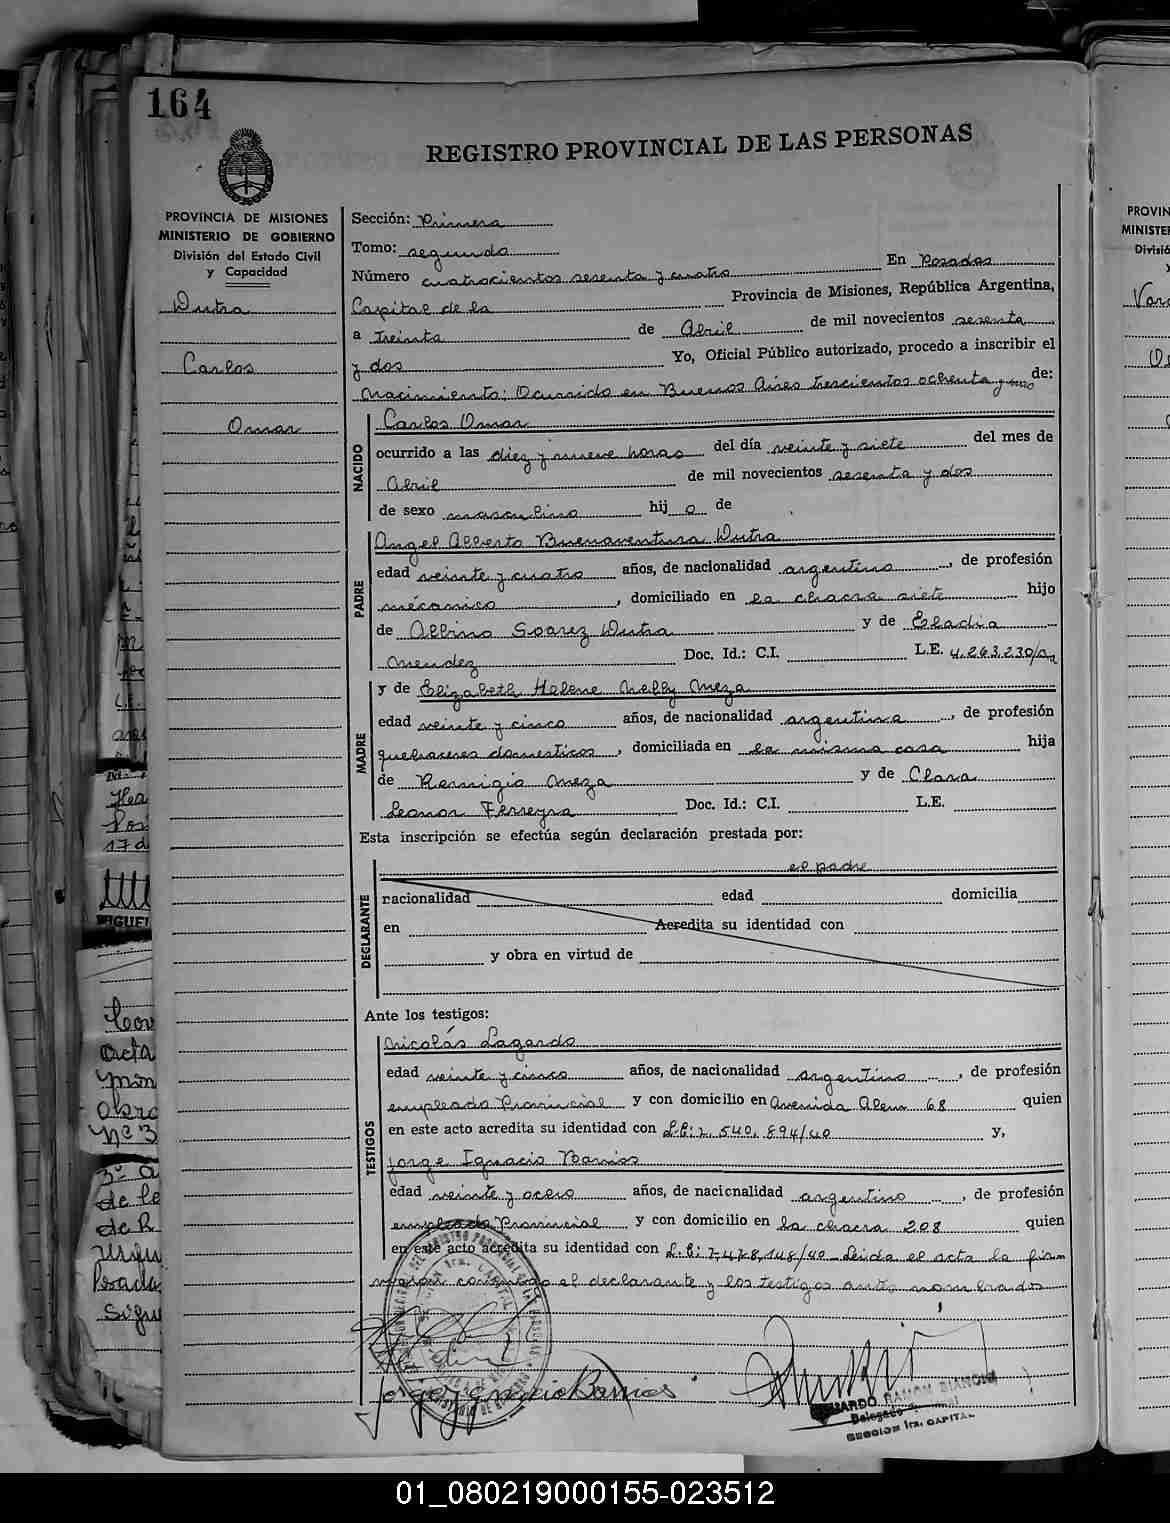 164
REGISTRO PROVINCIAL DE LAS PERSONAS
PROVINCIA DE MISIONES
MINISTERIO DE GOBIERNO
División del Estado Civil
y Capacidad
Dutra
Carlos
Omar
Sección: Primera
Tomo: segundo
Número cuatrocientos sesenta y cuatro En Posadas
Capital de la Provincia de Misiones, República Argentina,
a Treinta de Abril de mil novecientos sesenta
y dos Yo, Oficial Público autorizado, procedo a inscribir el
Nacimiento: Ocurrido en Buenos Aires trescientos ochenta y uno de:
NACIDO
Carlos Omar
ocurrido a las diez y nueve horas del día veinte y siete del mes de
Abril de mil novecientos sesenta y dos
de sexo masculino hij o de
PADRE
Angel Alberto Buenaventura Dutra
edad veinte y cuatro años, de nacionalidad argentino, de profesión
mecánico, domiciliado en la chacra siete hijo
de Albino Soarez Dutra y de Eladia
Mendez Doc. Id.: C.I. L.E. 4.263.230
MADRE
y de Elizabeth Helene Nelly Meza
edad veinte y cinco años, de nacionalidad argentina, de profesión
quehaceres domesticos, domiciliada en la misma casa hija
de Remigio Meza y de Clara
Leonor Ferreyra Doc. Id.: C.I. L.E.
Esta inscripción se efectúa según declaración prestada por:
DECLARANTE
el padre
racionalidad edad domicilia
en Acredita su identidad con
y obra en virtud de
Ante los testigos:
TESTIGOS
Nicolás Lagardo
edad veinte y cinco años, de nacionalidad argentino, de profesión
empleado Provincial y con domicilio en Avenida Alem 68 quien
en este acto acredita su identidad con L.E: 7.540.894/40 y,
Jorge Ignacio Barrios
edad veinte y ocho años, de nacionalidad argentino, de profesión
empleado Provincial y con domicilio en la chacra 208 quien
en este acto acredita su identidad con L.E: 7,478,148/40 Leida el acta la fir
maron conmigo el declarante y los testigos antes nombrados
Jorge Ignacio Barrios
RAMON BIANCHI
Delegado
SECCION 1ra. CAPITAL
01_080219000155-023512